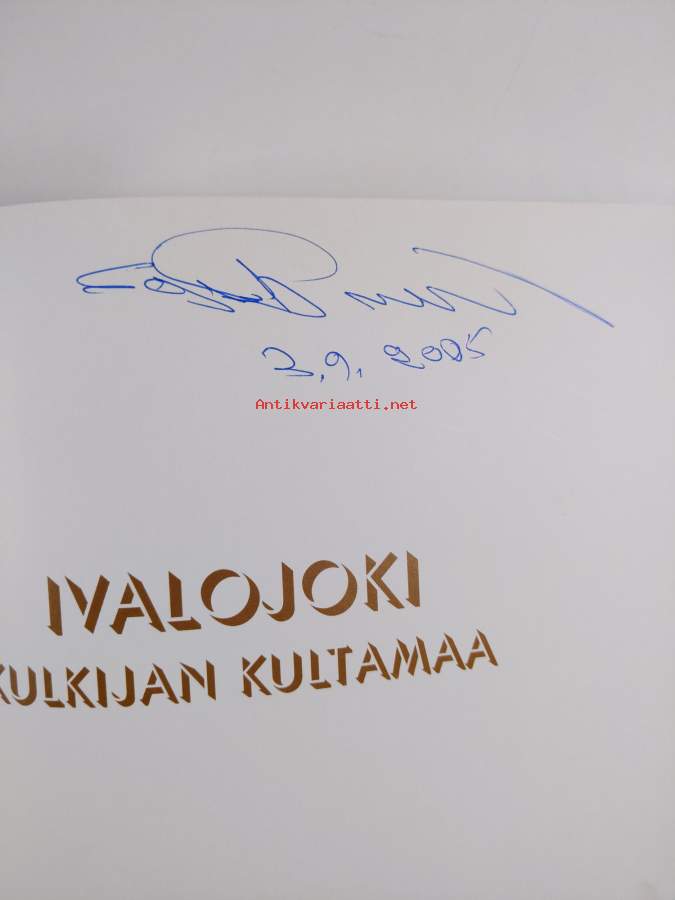 3.9. 2005
Antikvariaatti.net
IVALOJOKI
KULKIJAN KULTAMAA